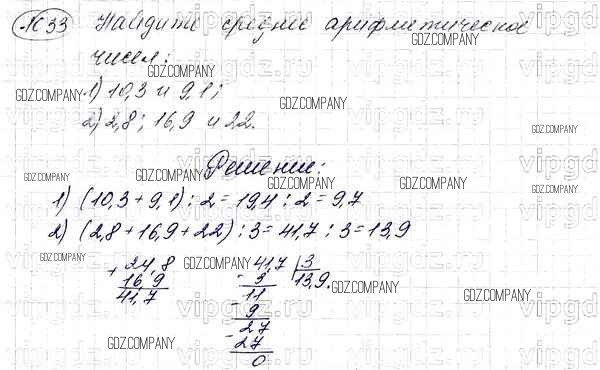 №33 Найдите среднее арифметическое
чисел:
1) 10,3 и 9,1;
2) 2,8; 16,9 и 22.
Решение:
1) (10,3 + 9,1) : 2 = 19,4 : 2 = 9,7
2) (2,8 + 16,9 + 22) : 3 = 41,7 : 3 = 13,9
+ 24,8
16,9
41,7
- 41,7 | 3
3 13,9.
11
- 9
27
- 27
0
GDZ.COMPANY
GDZ.COMPANY
GDZ.COMPANY
GDZ.COMPANY
GDZ.COMPANY
GDZ.COMPANY
GDZ.COMPANY
GDZ.COMPANY
GDZ.COMPANY
GDZ.COMPANY
GDZ.COMPANY
GDZ.COMPANY
GDZ.COMPANY
vipgdz.ru